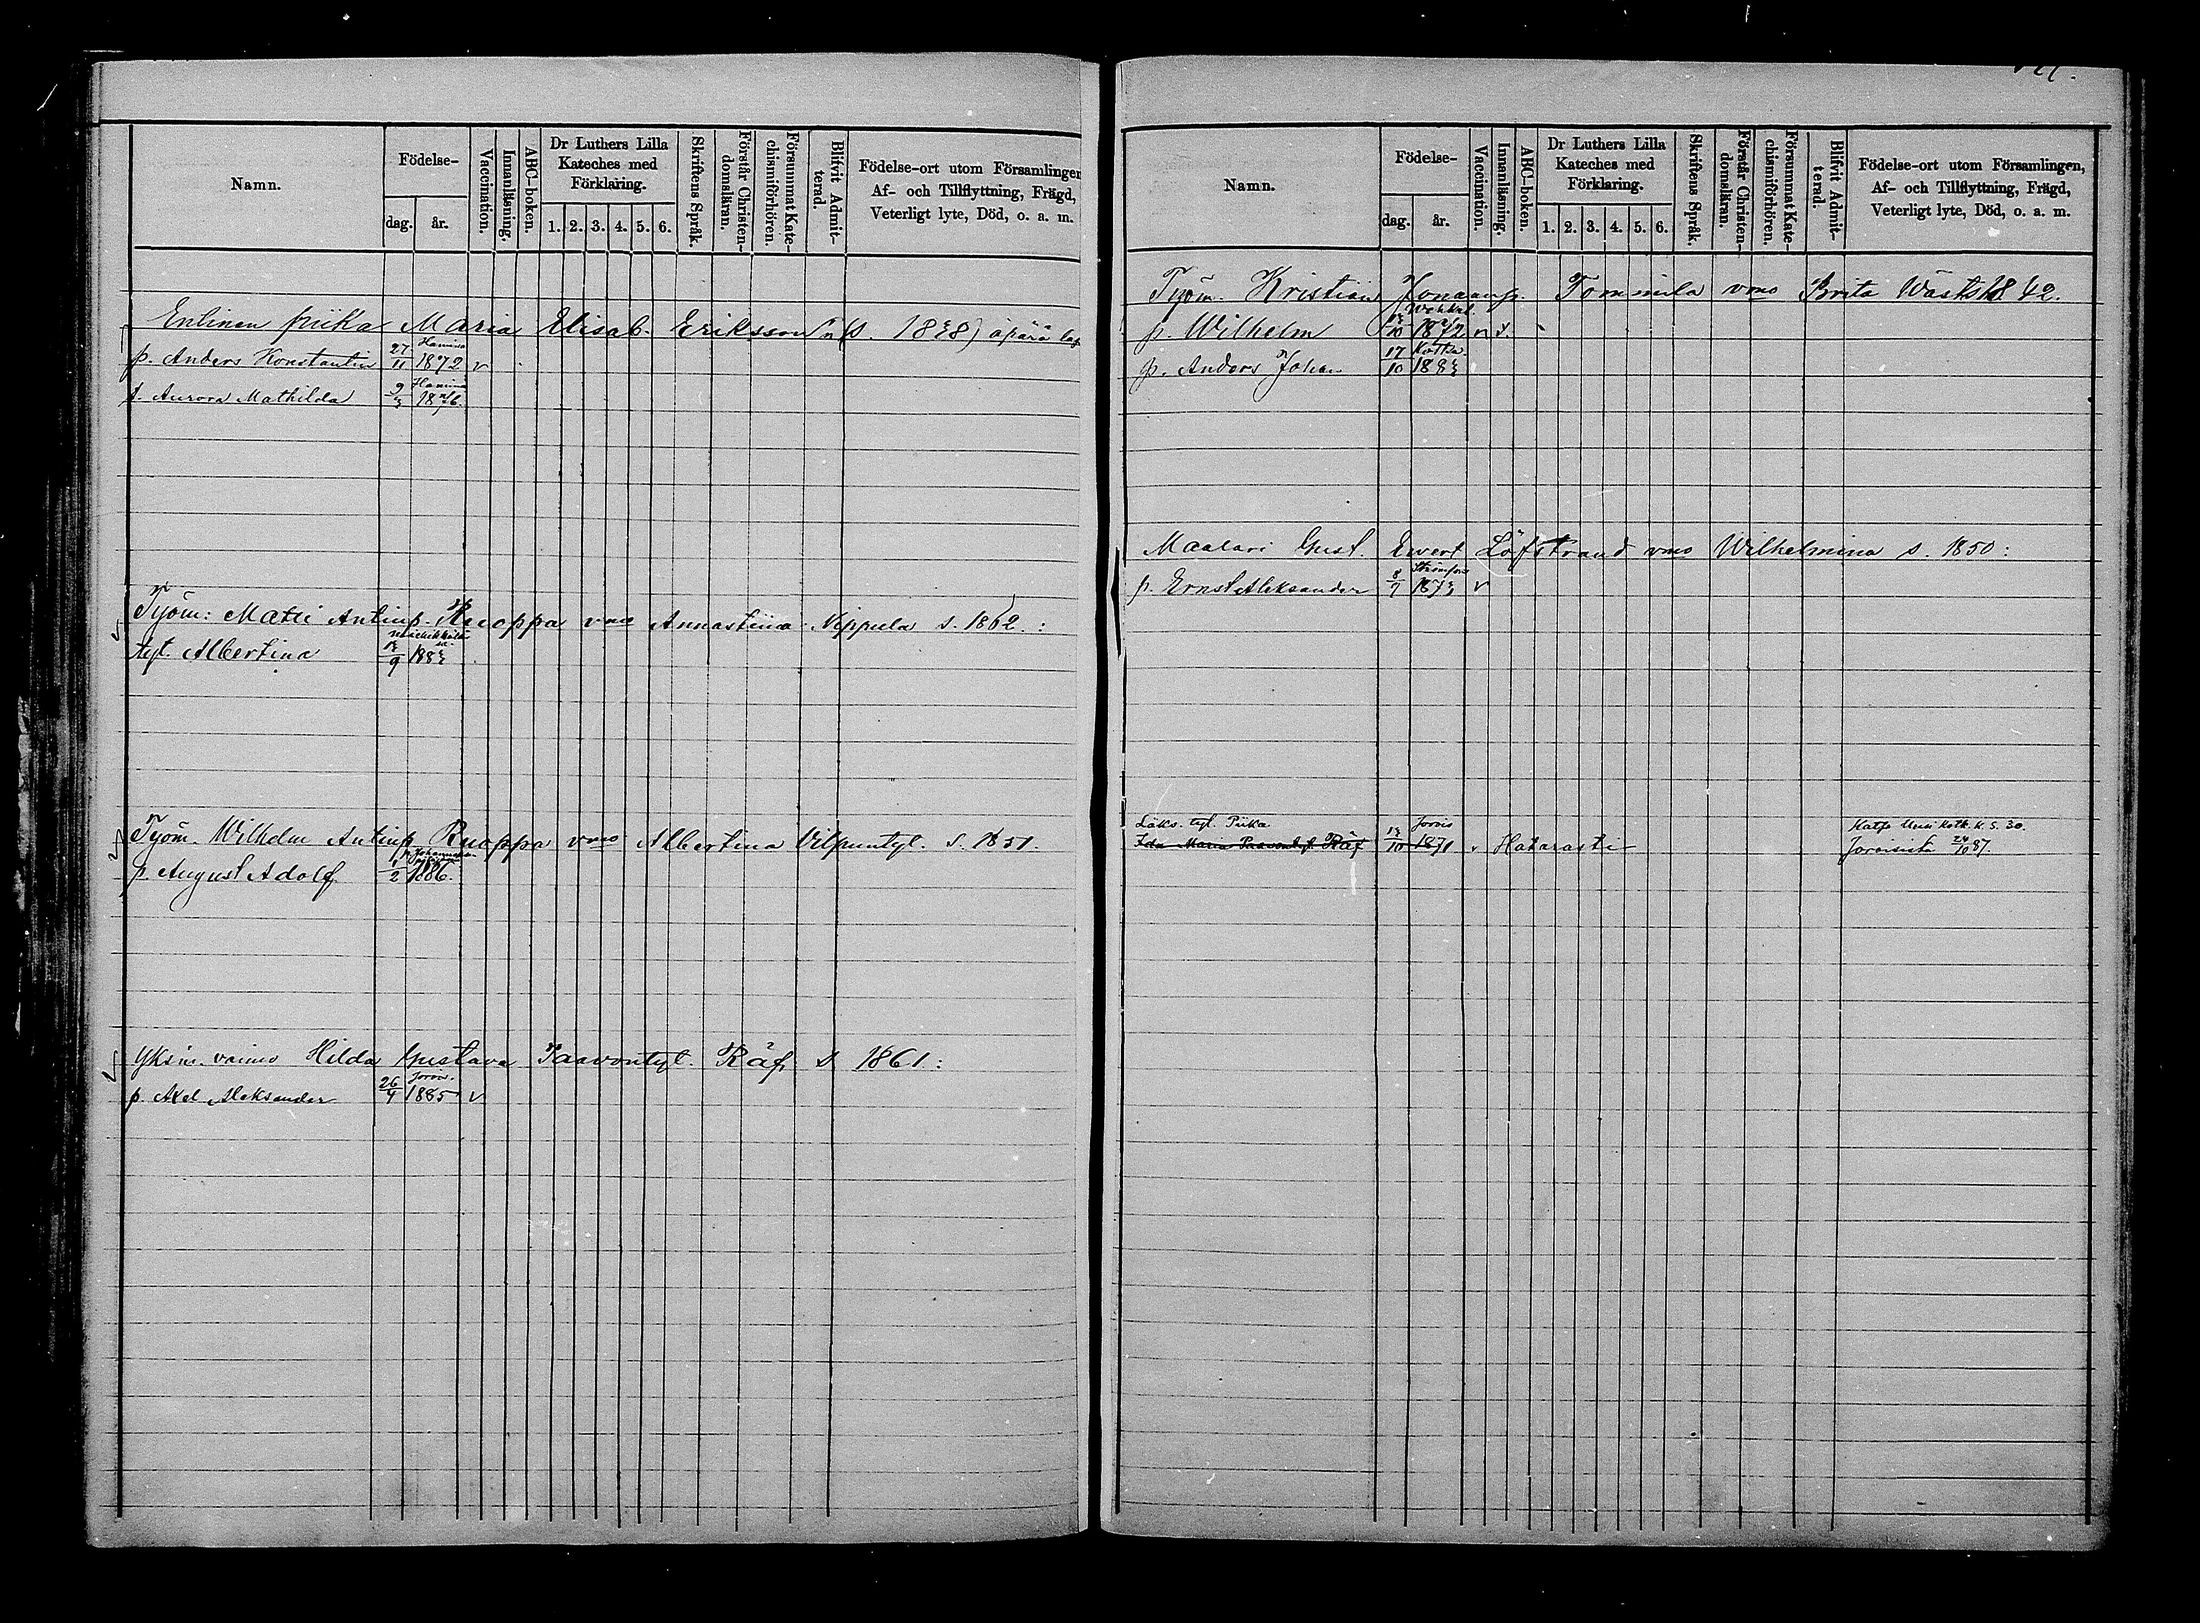 Namn. Födelse- dag. år. Vaccination. Innanläsning. ABC-boken. Dr Luthers Lilla Kateches med Förklaring. 1. 2. 3. 4. 5. 6. Skriftens Språk. Förstår Christendomsläran. Försummat Katechismiförhören. Blifvit Admitterad. Födelse-ort utom Församlingen, Af- och Tillflyttning, Frägd, Veterligt lyte, Död, o. a. m.
Entinen piika Maria Elisab. Eriksson
Hamina
p. Anders Konstantin 27/11 1872 v
Hamina
t. Aurora Mathilda
Työm: Matti Antinp. Ruoppa vmo Annastiina Nippula s. 1862. :
tyt. Albertina 13/9 1883
Työm. Wilhelm Antinp. Ruoppa vmo Albertina Vilpuntyt. s. 1851.
p. August Adolf 1/2 1886.
Yksin. vaimo Hilda Gustava Paavontyt. Räf s 1861 :
Jorois.
p. Axel Aleksander 26/4 1885 v
Namn. Födelse- dag. år. Vaccination. Innanläsning. ABC-boken. Dr Luthers Lilla Kateches med Förklaring. 1. 2. 3. 4. 5. 6. Skriftens Språk. Förstår Christendomsläran. Försummat Katechismiförhören. Blifvit Admitterad. Födelse-ort utom Församlingen, Af- och Tillflyttning, Frägd, Veterligt lyte, Död, o. a. m.
Työm. Kristian Jonaanp. Tommila vmo Brita 1842.
p. Wilhelm 13/10 1872 v
Kotka
p. Anders Johan 17/10 1883
Maalari Gust. Evert Löfstrand vmo Wilhelmina s. 1850 :
Strömfors
p. Ernst Aleksander 8/9 1873 v
Löks. tyt. Piika Jorois
Ida Maria Paavont. Räf 13/10 1871 v Katso Uusi kotk. K. S. 30.
Joroisista 87.